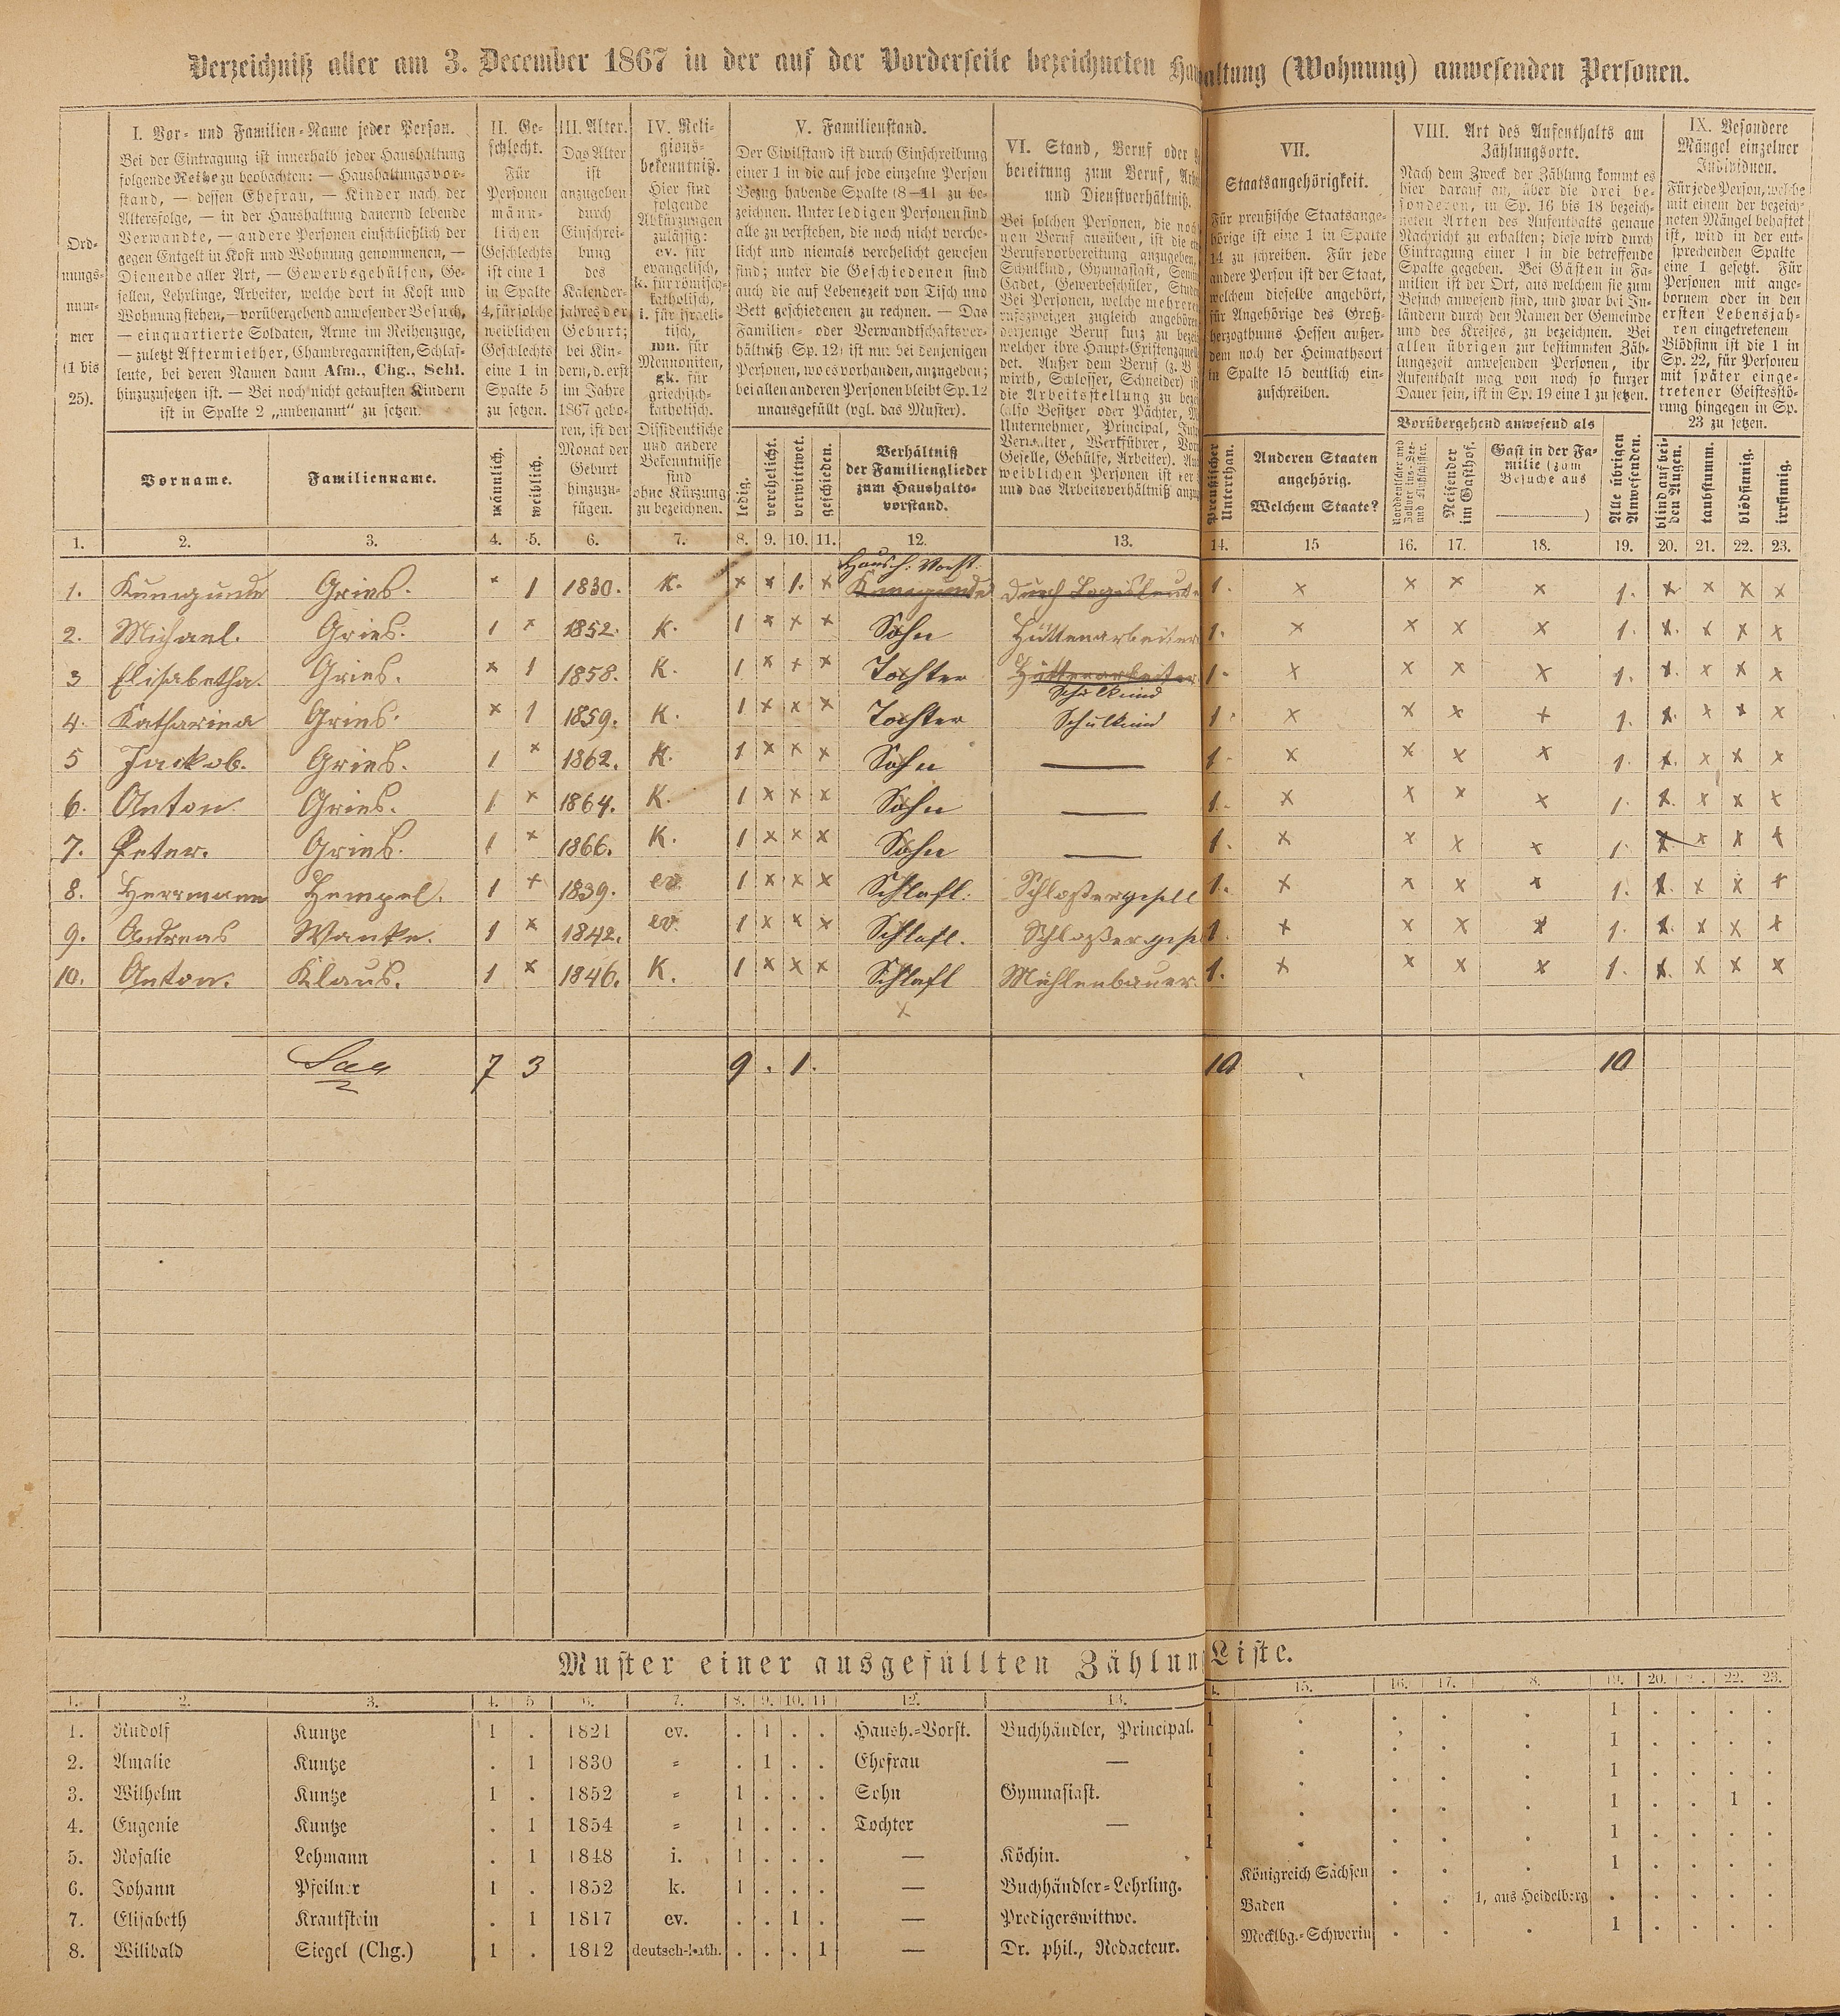 Verzeichniß aller am 3. December 1867 in der auf der Vorderseite bezeichneten Haushaltung (Wohnung) anwesenden Personen.
Ord-
nungs-
num-
mer
(1 bis
25).
I. Vor- und Familien-Name jeder Person.
Bei der Eintragung ist innerhalb jeder Haushaltung
folgende Reihe zu beobachten: — Haushaltungsvor-
stand, — dessen Ehefrau, — Kinder nach der
Altersfolge, — in der Haushaltung dauernd lebende
Verwandte, — andere Personen einschließlich der
gegen Entgelt in Kost und Wohnung genommenen, —
Dienende aller Art, — Gewerbsgehülfen, Ge-
sellen, Lehrlinge, Arbeiter, welche dort in Kost und
Wohnung stehen, — vorübergehend anwesender Besuch,
— einquartierte Soldaten, Arme im Reihenzuge,
— zuletzt Aftermiether, Chambregarnisten, Schlaf-
leute, bei deren Namen dann Afm., Chg., Schl.
hinzuzusetzen ist. — Bei noch nicht getauften Kindern
ist in Spalte 2 „unbenannt“ zu setzen.
Vorname.
Familienname.
II. Ge-
schlecht.
Für
Personen
männ-
lichen
Geschlechts
ist eine 1
in Spalte
4, für solche
weiblichen
Geschlechts
eine 1 in
Spalte 5
zu setzen.
männlich.
weiblich.
III. Alter.
Das Alter
ist
anzugeben
durch
Einschrei-
bung
des
Kalender-
jahres der
Geburt;
bei Kin-
dern, d. erst
im Jahre
1867 gebo-
ren, ist der
Monat der
Geburt
hinzuzu-
fügen.
IV. Reli-
gions-
bekenntniß.
Hier sind
folgende
Abkürzungen
zulässig:
ev. für
evangelisch,
k. für römisch-
katholisch,
i. für israeli-
tisch,
mn. für
Mennoniten,
gk. für
griechisch-
katholisch.
Dissidentische
und andere
Bekenntnisse
sind
ohne Kürzung
zu bezeichnen.
V. Familienstand.
Der Civilstand ist durch Einschreibung
einer 1 in die auf jede einzelne Person
Bezug habende Spalte (8—11 zu be-
zeichnen. Unter ledigen Personen sind
alle zu verstehen, die noch nicht verehe-
licht und niemals verehelicht gewesen
sind; unter die Geschiedenen sind
auch die auf Lebenszeit von Tisch und
Bett geschiedenen zu rechnen. — Das
Familien- oder Verwandtschaftsver-
hältniß (Sp. 12) ist nur bei denjenigen
Personen, wo es vorhanden, anzugeben;
bei allen anderen Personen bleibt Sp. 12
unausgefüllt (vgl. das Muster).
ledig.
verehelicht.
verwittwet.
geschieden.
Verhältniß
der Familienglieder
zum Haushalts-
vorstand.
VI. Stand, Beruf oder
bereitung zum Beruf,
und Dienstverhältniß.
Bei solchen Personen, die
nen Beruf ausüben, ist die
Berufsvorbereitung anzugeben,
Schulkind, Gymnasiast,
Cadet, Gewerbeschüler,
Bei Personen, welche
zugleich
derjenige Beruf kurz zu
welcher ihre
det. Außer dem Beruf (z. B.
wirth, Schlosser, Schneider)
die Arbeitsstellung zu
(also Besitzer oder Pächter,
Unternehmer, Principal,
Verwalter, Werkführer,
Geselle, Gehülfe, Arbeiter).
weiblichen Personen ist
und das Arbeitsverhältniß
VII.
Staatsangehörigkeit.
Für preußische Staatsange-
hörige ist eine 1 in Spalte
14 zu schreiben. Für jede
andere Person ist der Staat,
welchem dieselbe angehört,
für Angehörige des Groß-
herzogthums Hessen außer-
dem noch der Heimathsort
in Spalte 15 deutlich ein-
zuschreiben.
Preußischer
Unterthan.
Anderen Staaten
angehörig.
Welchem Staate?
VIII. Art des Aufenthalts am
Zählungsorte.
Nach dem Zweck der Zählung kommt es
hier darauf an, über die drei be-
sonderen, in Sp. 16 bis 18 bezeich-
neten Arten des Aufenthalts genaue
Nachricht zu erhalten; diese wird durch
Eintragung einer 1 in die betreffende
Spalte gegeben. Bei Gästen in Fa-
milien ist der Ort, aus welchem sie zum
Besuch anwesend sind, und zwar bei In-
ländern durch den Namen der Gemeinde
und des Kreises, zu bezeichnen. Bei
allen übrigen zur bestimmten Zäh-
lungszeit anwesenden Personen, ihr
Aufenthalt mag von noch so kurzer
Dauer sein, ist in Sp. 19 eine 1 zu setzen.
Vorübergehend anwesend als
Norddeutscher und
Zollvereins-See-
und Flußschiffer.
Reisender
im Gasthof.
Gast in der Fa-
milie (zum
Besuche aus
)
Alle übrigen
Anwesenden.
IX. Besondere
Mängel einzelner
Individuen.
Für jede Person, welche
mit einem der bezeich-
neten Mängel behaftet
ist, wird in der ent-
sprechenden Spalte
eine 1 gesetzt. Für
Personen mit ange-
bornem oder in den
ersten Lebensjah-
ren eingetretenem
Blödsinn ist die 1 in
Sp. 22, für Personen
mit später einge-
tretener Geistesstö-
rung hingegen in Sp.
23 zu setzen.
blind auf bei-
den Augen.
taubstumm.
blödsinnig.
irrsinnig.
1. 2. 3. 4. 5. 6. 7. 8. 9. 10. 11. 12. 13. 14. 15 16. 17. 18. 19. 20. 21. 22. 23.
Haush: Vorst.
1. Kunigunde Gries. × 1 1830. K. × × 1. × Kunigunde durch Logisleute 1. × × × × 1. × × × ×
2. Michael. Gries. 1 × 1852. K. 1 × × × Sohn Hüttenarbeiter 1. × × × × 1. × × × ×
3 Elisabetha. Gries. × 1 1858. K. 1 × × × Tochter Hüttenarbeiter 1. × × × × 1. × × × ×
Schulkind
4. Katharina Gries. × 1 1859. K. 1 × × × Tochter Schulkind 1. × × × × 1. × × × ×
5 Jackob. Gries. 1 × 1862. K. 1 × × × Sohn — 1. × × × × 1. × × × ×
6. Anton. Gries. 1 × 1864. K. 1 × × × Sohn — 1. × × × × 1. × × × ×
7. Peter. Gries. 1 × 1866. K. 1 × × × Sohn — 1. × × × × 1. × × × ×
8. Herrmann Hempel. 1 × 1839. ev. 1 × × × Schlafl. Schloßergesell 1. × × × × 1. × × × ×
9. Andreas Wanke. 1 × 1842. ev. 1 × × × Schlafl. Schloßergesel 1. × × × × 1. × × × ×
10. Anton. Klaus. 1 × 1846. K. 1 × × × Schlafl Mühlenbauer. 1. × × × × 1. × × × ×
×
7 3 9 . 1. 10 10
Muster einer ausgefüllten Zählungs-Liste.
1. 2. 3. 4. 5 6. 7. 8. 9. 10. 11 12. 13. 15. 16. 17. 8. 19. 20. 22. 23.
1. Rudolf Kuntze 1 . 1821 ev. . 1 . . Haush.-Vorst. Buchhändler, Principal. 1 . . . . 1 . . . .
2. Amalie Kuntze . 1 1830 „ . 1 . . Ehefrau — 1 . . . . 1 . . . .
3. Wilhelm Kuntze 1 . 1852 „ 1 . . . Sohn Gymnasiast. 1 . . . . 1 . . . .
4. Eugenie Kuntze . 1 1854 „ 1 . . . Tochter — 1 . . . . 1 . . 1 .
5. Rosalie Lehmann . 1 1848 i. 1 . . . — Köchin. 1 . . . . 1 . . . .
6. Johann Pfeilner 1 . 1852 k. 1 . . . — Buchhändler-Lehrling. . Königreich Sachsen . . . 1 . . . .
7. Elisabeth Krautstein . 1 1817 ev. . . 1 . — Predigerswittwe. . Baden . . 1, aus Heidelberg . . . . .
8. Wilibald Siegel (Chg.) 1 . 1812 deutsch-kath. . . . 1 — Dr. phil., Redacteur. . Mecklbg.-Schwerin . . . 1 . . . .